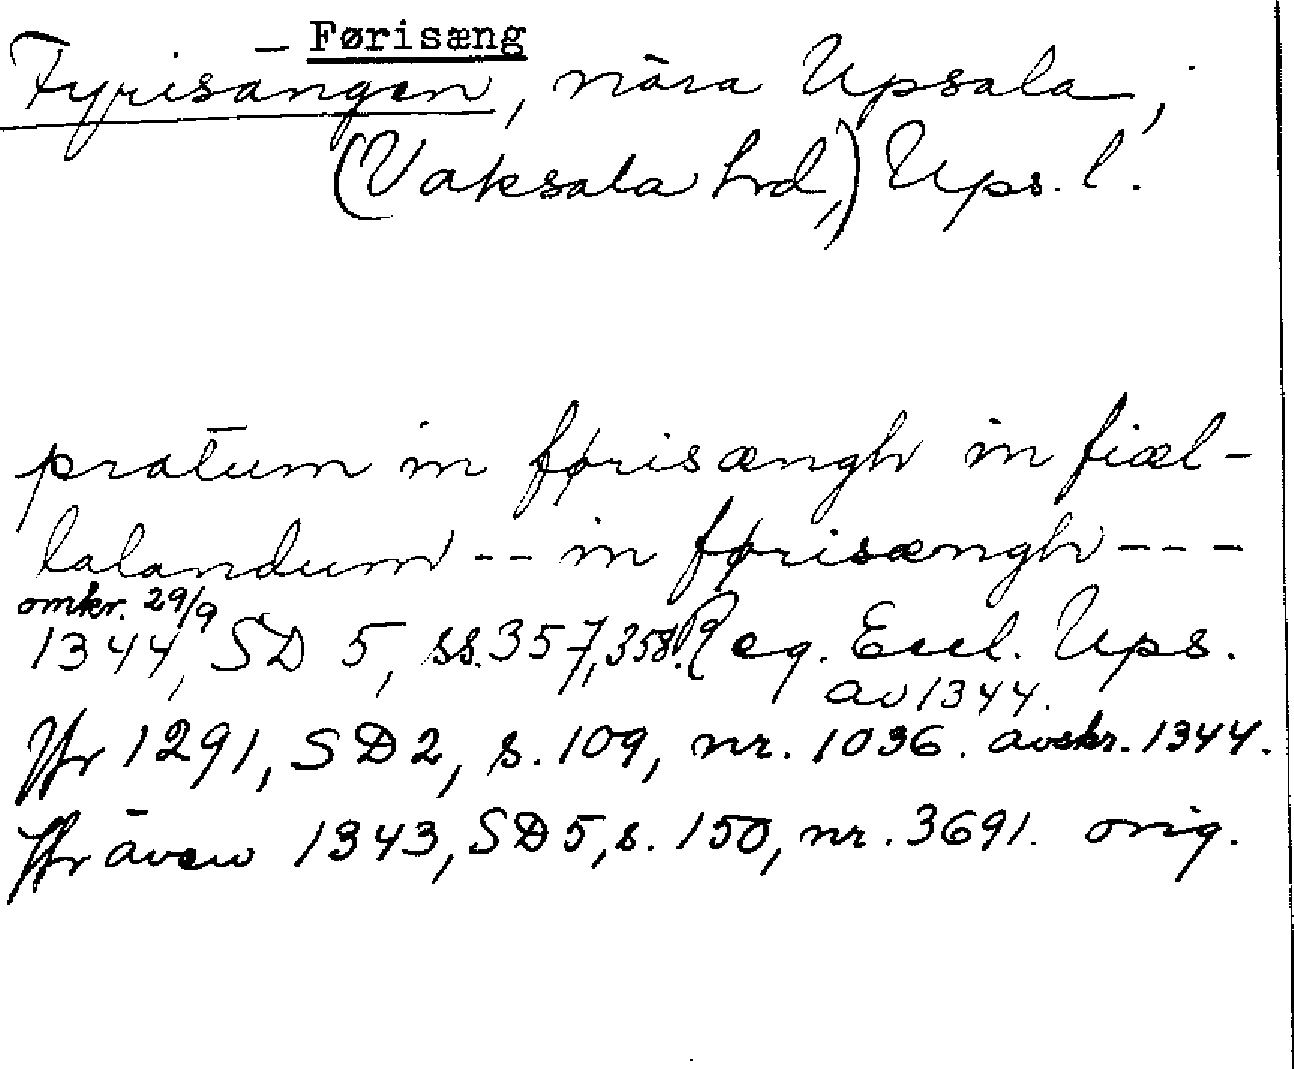 Førisæng
Fyrisängen, nära Upsala,
(Vaksala hrd,) Ups. l.
pratum in førisængh in fiæl-
lalandum -- in førisængh ---
omkr. 29/9
1344, SD 5, ss. 357, 358. Reg. Eccl. Ups.
av 1344.
Jfr 1291, SD 2, s. 109, nr. 1036. avskr. 1344.
Jfr även 1343, SD 5, s. 150, nr. 3691. orig.